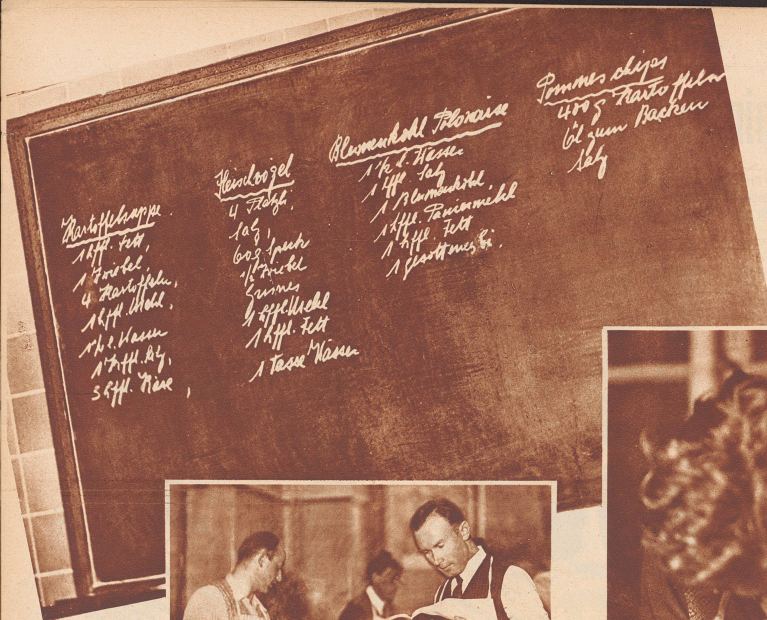 Kartoffelsuppe.
1 Eßffl. Fett,
1 Zwiebel
4 Kartoffeln,
1 Eßffl. Mehl,
1½ l. Wasser
Fleischvögel
4 Plätzli,
Salz,
60g Speck
½ Zwiebel
Grünes
1 Eßffl Mehl
1 Eßffl. Fett
1 Tasse Wasser
Blumenkohl Polonaise
1½ l. Wasser
1 Blumenkohl,
1 Eßffl. Paniermehl
1 Eßffl. Fett
1 gesottenes Ei.
Pommes chips
400g Kartoffeln
Öl zum Backen
Salz